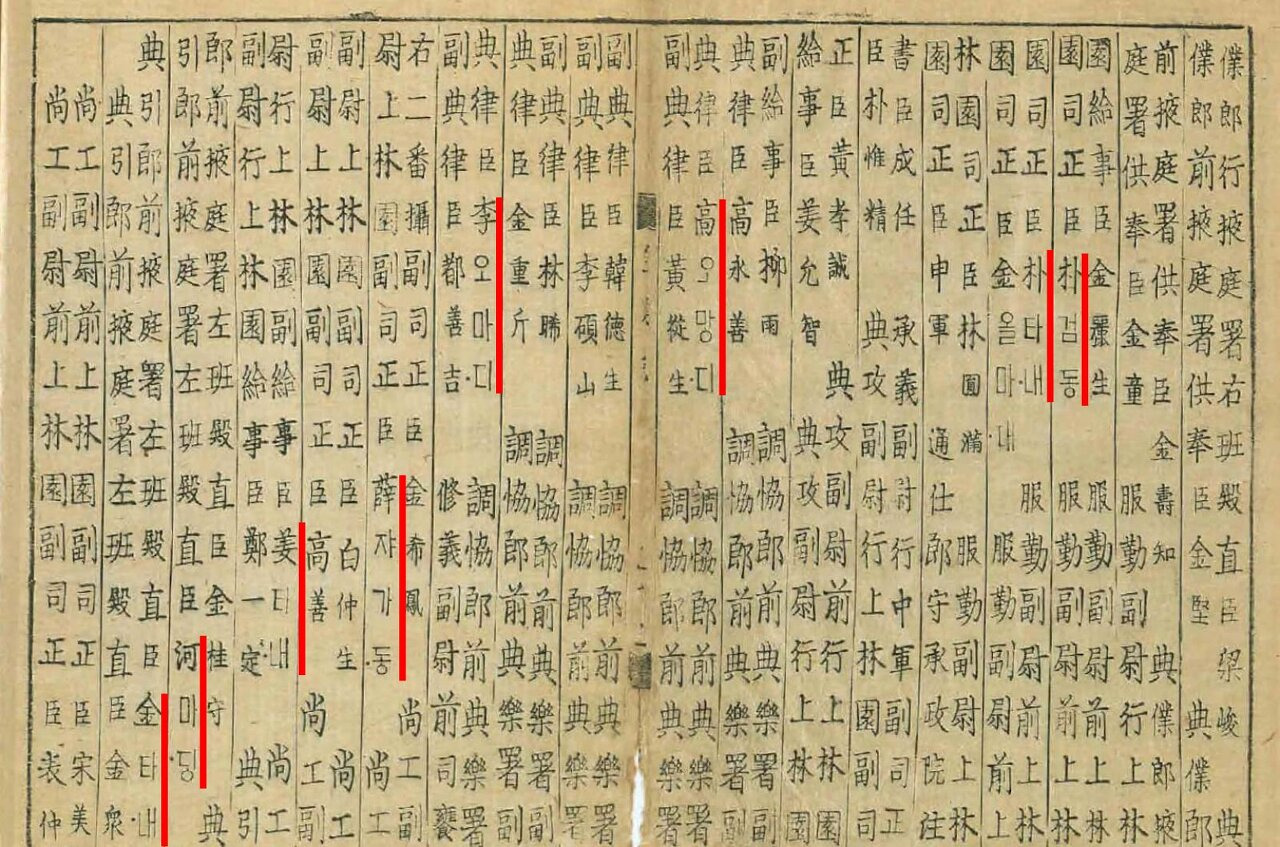 僕郎行掖庭署右班殿直臣梁峻 典
僕郎前掖庭署供奉臣金堅 典僕郎
前掖庭署供奉臣金壽知 典僕郎掖
庭署供奉臣金童 服勤副尉行上林
園給事臣金麗生 服勤副尉前上林
園司正臣朴검동 服勤副尉前上林
園司正臣朴타내 服勤副尉前上林
園司正臣金올마대 服勤副尉前上
林園司正臣林圓滿 服勤副尉上林
園司正臣申軍 通仕郎守承政院注
書臣成任 承義副尉行中軍副司正
臣朴惟精 典攻副尉行上林園副司
正臣黃孝誠 典攻副尉前行上林園
給事臣姜允智 典攻副尉行上林園
副給事臣柳雨 調協郎前典樂署副
典律臣高永善 調協郎前典樂署副
典律臣高오망디 調協郎前典樂署
副典律臣黃從生 調協郎前典樂署
副典律臣韓德生 調協郎前典樂署
副典律臣李碩山 調協郎前典樂署
副典律臣林晞 調協郎前典樂署副
典律臣金重斤 調協郎前典樂署副
典律臣李오마디 調協郎前典樂署
副典律臣都善吉 修義副尉前司饔
右二番攝副司正臣金希鳳 尚工副
尉上林園副司正臣薛쟈가동 尚工
副尉上林園副司正臣白仲生 尚工
副尉上林園副司正臣高善 尚工副
尉行上林園副給事臣姜타내 尚工
副尉行上林園給事臣鄭一定 典引
郎前掖庭署左班殿直臣金桂守 典
引郎前掖庭署左班殿直臣河마딩
典引郎前掖庭署左班殿直臣金타내
典引郎前掖庭署左班殿直臣金衆
尚工副尉前上林園副司正臣宋美
尚工副尉前上林園副司正臣表仲